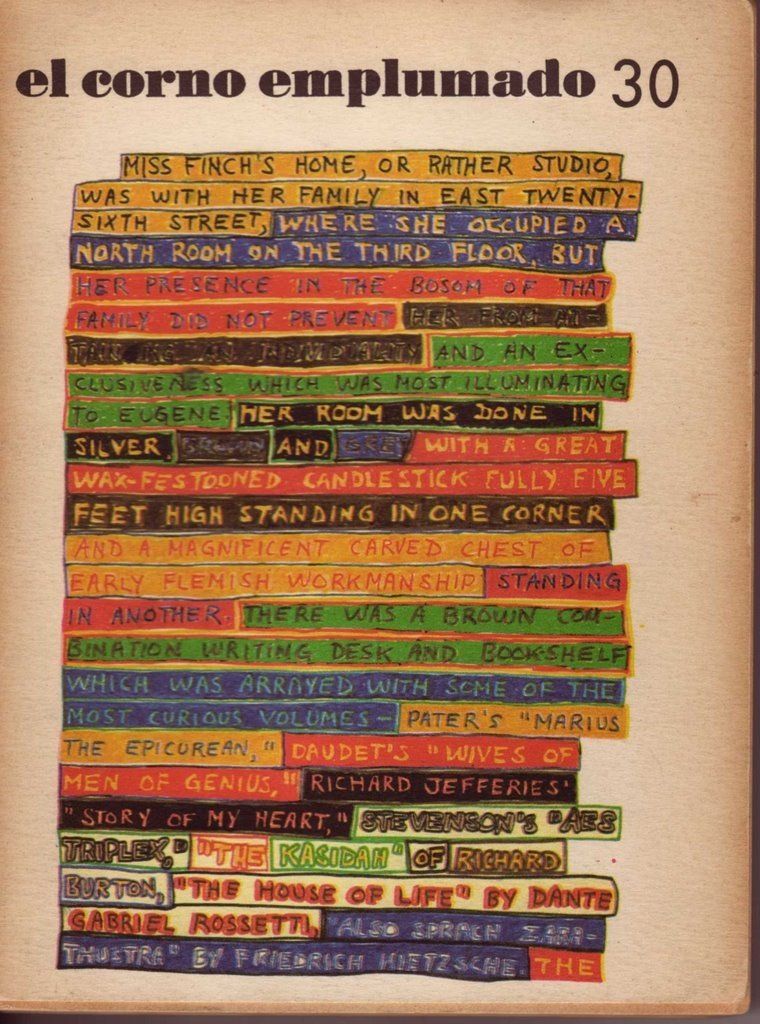 el corno emplumado 30
MISS FINCH'S HOME, OR RATHER STUDIO,
WAS WITH HER FAMILY IN EAST TWENTY-
SIXTH STREET, WHERE SHE OCCUPIED A
NORTH ROOM ON THE THIRD FLOOR, BUT
HER PRESENCE IN THE BOSOM OF THAT
FAMILY DID NOT PREVENT HER FROM AT-
TAINING AN INDIVIDUALITY AND AN EX-
CLUSIVENESS WHICH WAS MOST ILLUMINATING
TO EUGENE. HER ROOM WAS DONE IN
SILVER, BROWN AND GREY WITH A GREAT
WAX-FESTOONED CANDLESTICK FULLY FIVE
FEET HIGH STANDING IN ONE CORNER
AND A MAGNIFICENT CARVED CHEST OF
EARLY FLEMISH WORKMANSHIP STANDING
IN ANOTHER. THERE WAS A BROWN COM-
BINATION WRITING DESK AND BOOK-SHELF
WHICH WAS ARRAYED WITH SOME OF THE
MOST CURIOUS VOLUMES - PATER'S "MARIUS
THE EPICUREAN," DAUDET'S "WIVES OF
MEN OF GENIUS," RICHARD JEFFERIES'
"STORY OF MY HEART," STEVENSON'S "AES
TRIPLEX," "THE KASIDAH" OF RICHARD
BURTON, "THE HOUSE OF LIFE" BY DANTE
GABRIEL ROSSETTI, "ALSO SPRACH ZARA-
THUSTRA" BY FRIEDRICH NIETZSCHE. THE